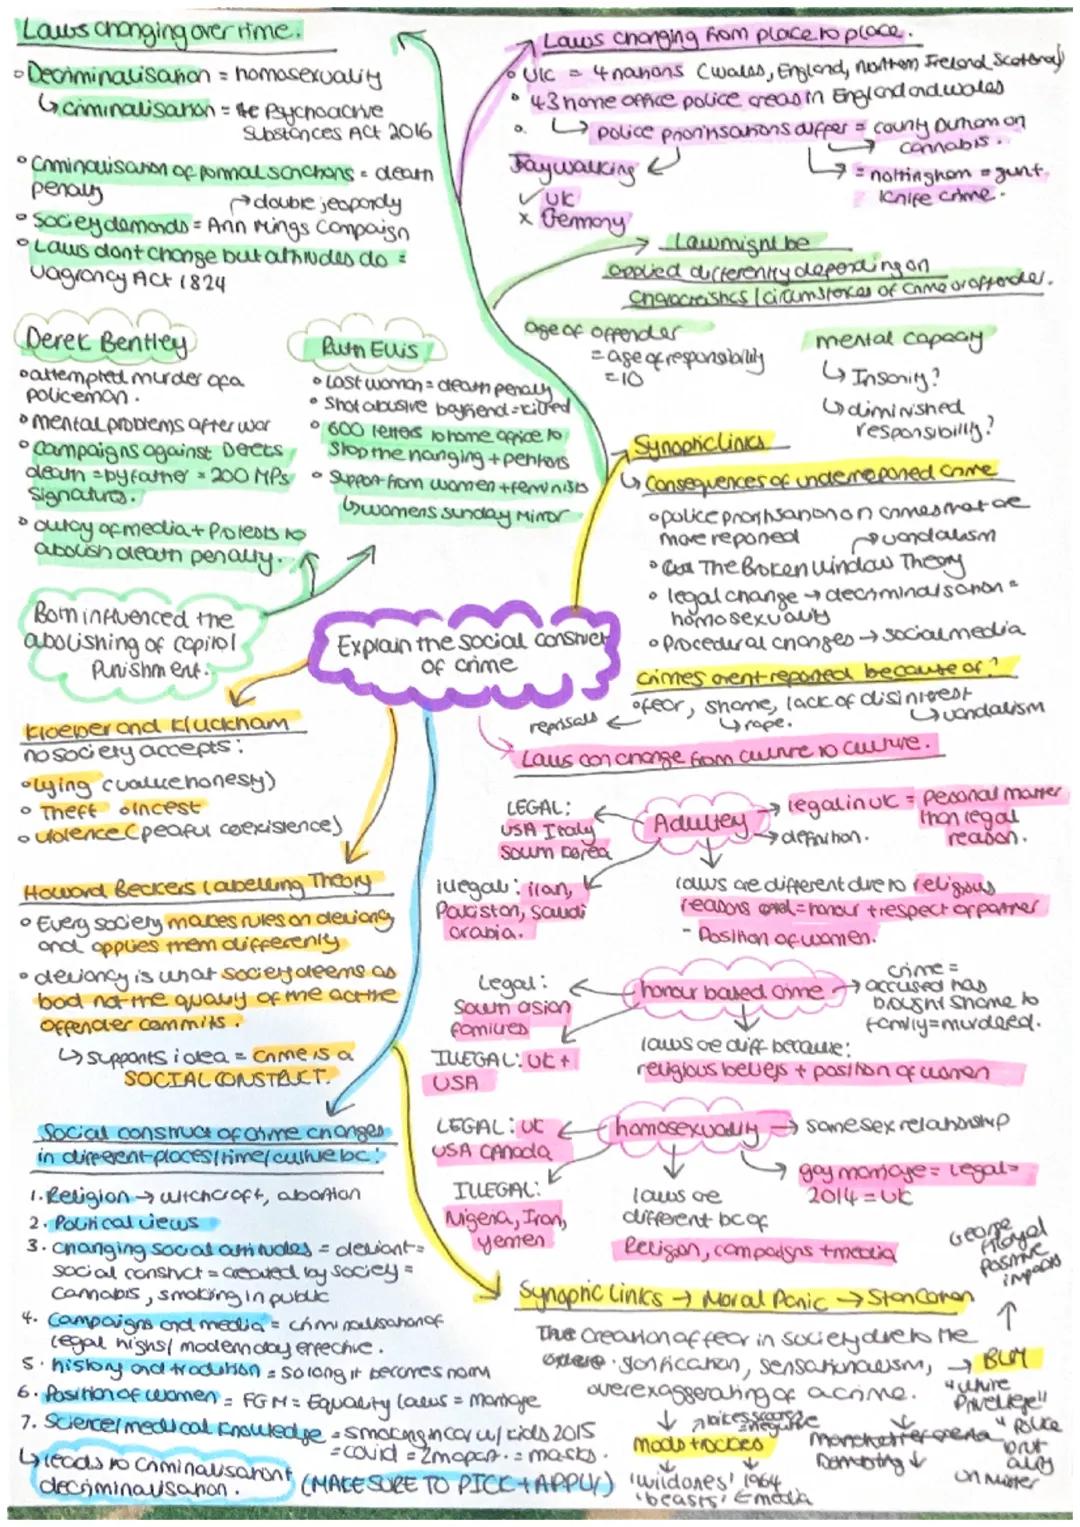 Laws changing over time.
Decriminalisation = homosexuality
↳ criminalisation = the Psychoactive
Substances Act 2016
Criminalisation of formal sanctions = death
penalty
→ double jeopardy
Society demands = Ann Mings Campaign
Laws dont change but attitudes do =
Vagrancy Act 1824
Laws changing from place to place.
UK = 4 nations (wales, England, Northern Ireland, Scotland)
43 home office police areas in England and wales
↳ police priorisations differ = county Durham on
cannabis.
= nottingham = gun +
knife crime.
Jaywalking
✓ UK
x Germany
Law might be
applied differently depending on
characteristics / circumstances of crime or offender.
age of offender
= age of responsibility
= 10
mental capacity
↳ Insanity?
↳ diminished
responsibility?
Derek Bentley
attempted murder of a
policeman.
mental problems after war
Campaigns against Dereks
death = by father = 200 MPs
signatures.
outcry of media + Protests to
abolish death penalty.
Ruth Ellis
Last woman = death penalty
Shot abusive boyfriend = killed
600 letters to home office to
stop the hanging + petitions
Support from women + feminists
↳ womens sunday mirror
Both influenced the
abolishing of capitol
Punishment.
Explain the social construct
of crime
Synoptic links
↳ Consequences of underreported crime
police prioritisation on crimes that are
more reported → vandalism
The Broken Window Theory
legal change → decriminalisation =
homosexuality
Procedural changes → social media
crimes arent reported because of?
fear, shame, lack of disinterest
reprisals
↳ rape.
↳ vandalism
Kloeper and Kluckham
no society accepts:
lying (value honesty)
Theft
Incest
violence (peaful coexistence)
Howard Beckers Labelling Theory
Every society makes rules on deviancy
and applies them differently
deviancy is what society deems as
bad not the quality of the act the
offender commits.
↳ supports idea = crime is a
SOCIAL CONSTRUCT.
Laws can change from culture to culture.
Adultey
→ legal in uk = Personal matter
than legal
reason.
→ definition.
LEGAL:
USA Italy
South Korea
illegal: iran,
Pakistan, Saudi
arabia.
laws are different due to religious
reasons = honour + respect of partner
- Position of women.
honour based crime
→ crime =
accused has
brought shame to
family = murdered.
Legal:
South asian
families
ILLEGAL: UK +
USA
laws are diff because:
religious beliefs + position of women
homosexuality → same sex relationship
gay marriage = Legal =
2014 = UK
LEGAL: UK
USA CANADA
ILLEGAL:
Nigeria, Iran,
yemen
laws are
different bc of
Religion, campaigns + media
Social construct of crime changes
in different places/time/culture bc:
1. Religion → witchcraft, abortion
2. Political views
3. changing social attitudes = deviant =
social construct = created by society =
Cannabis, smoking in public
4. Campaigns and media = criminalisation of
legal highs / modern day effective.
5. history and tradition = so long it becomes norm
6. Position of women = FGM = Equality laws = marriage
7. Science/medical knowledge = smoking in car w/ kids 2015
= covid = 2m apart = masks.
↳ leads to criminalisation +
decriminalisation.
(MAKE SURE TO PICK + APPLY)
Synoptic links → Moral Panic → Stan Cohen
The creation of fear in society due to the
glorification, sensationalism,
overexaggerating of a crime.
mods + rockers
'wildones' 1964
'beasts' ← media
manchester arena
bombing
→ BLM
"white
Privelege"
"Police
brutality
George
Floyd
Positive
impacts